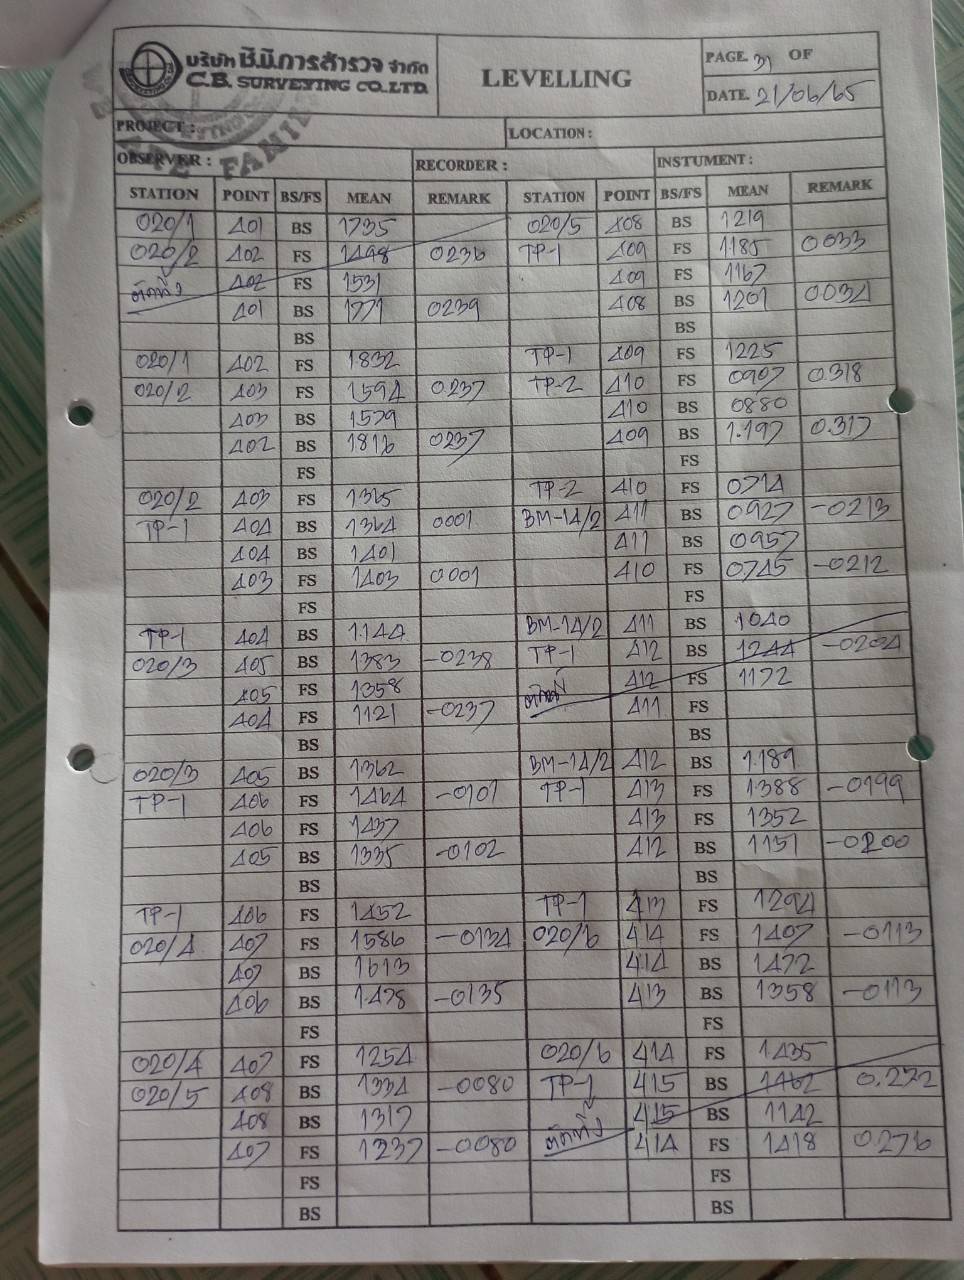 บริษัท ซี.บี.การสำรวจ จำกัด
C.B. SURVEYING CO.LTD.
LEVELLING
PAGE. 31 OF
DATE. 21/06/65
PROJECT : LOCATION :
OBSERVER : RECORDER : INSTUMENT :
STATION POINT BS/FS MEAN REMARK STATION POINT BS/FS MEAN REMARK
020/1 401 BS 1735 020/5 408 BS 1219
020/2 402 FS 1498 0236 TP-1 409 FS 1185 0033
ตัดทิ้ง 402 FS 1531 409 FS 1167
401 BS 1771 0239 408 BS 1201 0034
BS BS
020/1 402 FS 1832 TP-1 409 FS 1225
020/2 403 FS 1594 0.237 TP-2 410 FS 0907 0.318
403 BS 1579 410 BS 0880
402 BS 1816 0237 409 BS 1.197 0.317
FS FS
020/2 403 FS 1365 TP-2 410 FS 0714
TP-1 404 BS 1364 0001 BM-14/2 411 BS 0927 -0213
404 BS 1401 411 BS 0957
403 FS 1403 0001 410 FS 0745 -0212
FS FS
TP-1 404 BS 1.144 BM-14/2 411 BS 1040
020/3 405 BS 1383 -0238 TP-1 412 BS 1244 -0204
405 FS 1358 412 FS 1172
404 FS 1121 -0237 411 FS
BS BS
020/3 405 BS 1362 BM-14/2 412 BS 1.189
TP-1 406 FS 1464 -0101 TP-1 413 FS 1388 -0199
406 FS 1437 413 FS 1352
405 BS 1335 -0102 412 BS 1151 -0200
BS BS
TP-1 406 FS 1452 TP-1 413 FS 1294
020/4 407 FS 1586 -0134 020/6 414 FS 1407 -0113
407 BS 1613 414 BS 1472
406 BS 1478 -0135 413 BS 1358 -0113
FS FS
020/4 407 FS 1254 020/6 414 FS 1435
020/5 408 BS 1334 -0080 TP-1 415 BS 1462 0.272
408 BS 1317 ตัดทิ้ง 415 BS 1142
407 FS 1237 -0080 414 FS 1418 0.276
FS FS
BS BS